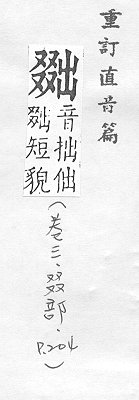 重訂直音篇
音拙㑁
短貌
(卷三.叕部.P.204)